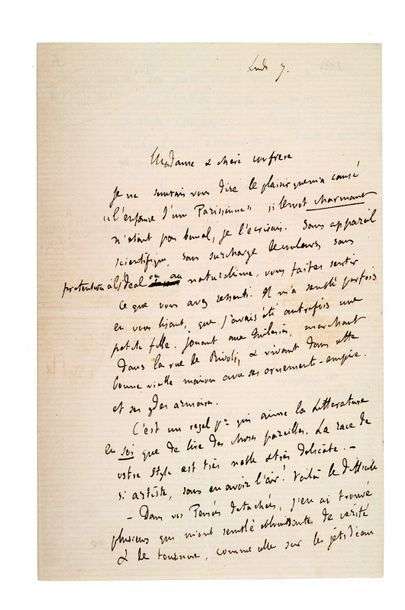 Lundi 7.
Madame & chère confrère
Je ne saurais vous dire le plaisir que m'a causé
« l'enfance d'une Parisienne » si le mot charmant
n'était pas banal, je l'écrirais. Sans appareil
scientifique, sans surcharge de couleurs, sans
prétention à l'Idéal ou au naturalisme, vous faites sentir
ce que vous avez ressenti. Il m'a semblé parfois
en vous lisant, que j'avais été autrefois une
petite fille, jouant aux Tuileries, marchant
dans la rue de Rivoli, & vivant dans cette
bonne vieille maison avec ses ornements-empire.
et ses gdes armoires.
C'est un régal pr qui aime la Littérature
en soi que de lire des choses pareilles. La race de
votre style est très noble & très délicate. –
si artiste, sans en avoir l'air! Voilà le difficile
– Dans vos Pensées détachées, j'en ai trouvé
plusieurs qui m'ont semblé de vérité
& de tournure, comme celle sur le jet d'eau